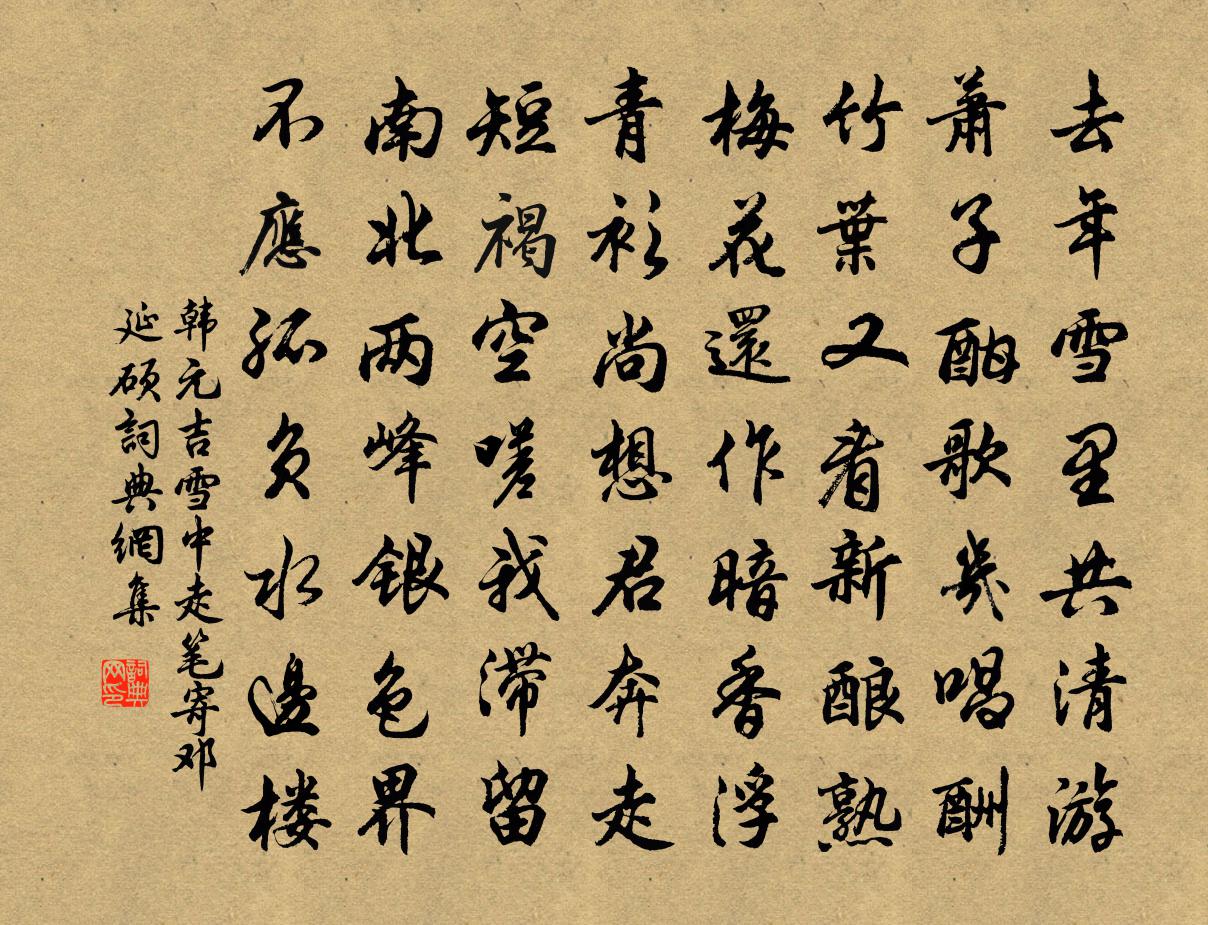 去年雪里共清游
萧子酣歌几唱酬
竹葉又看新酿熟
梅花還作暗香浮
青衫尚想君奔走
短褐空嗟我滞留
南北两峰銀色界
不應孤負水邊楼
韩元吉雪中走笔寄邓
延硕詞典網集
詞典
网印